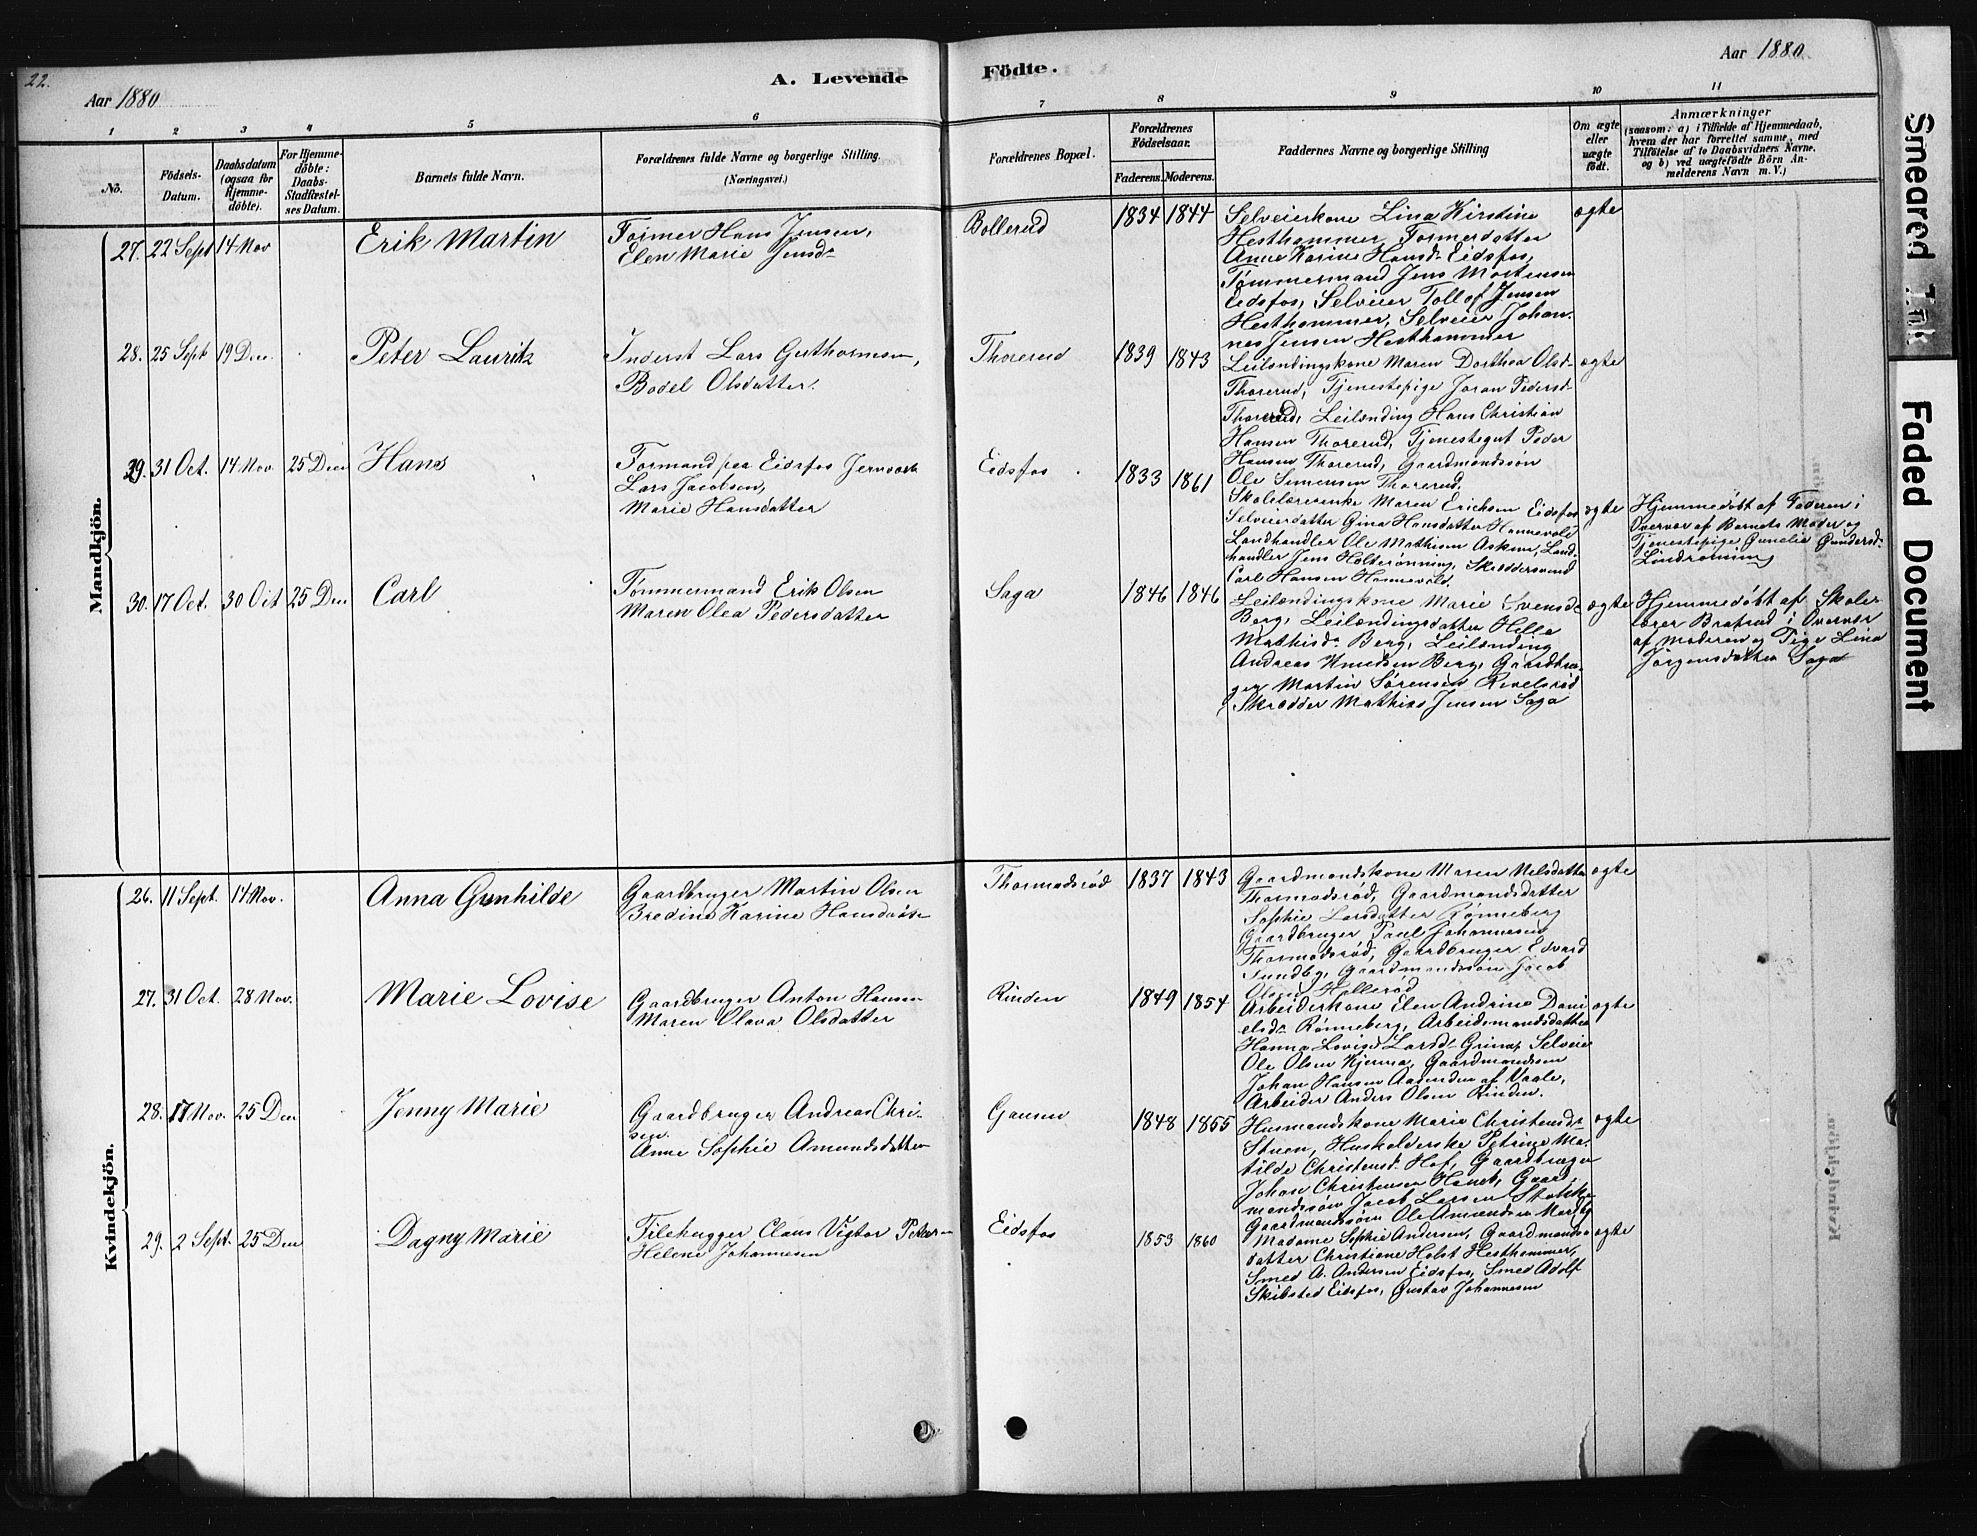 22.
Aar 1880
A. Levende Födte.
Aar 1880
1 2 3 4 5 6 7 8 9 10 11
No.
Födsels-Datum.
Daabsdatum (ogsaa for Hjemme-döbte).
For Hjemme-döbte: Daabs-Stadfæstel-ses Datum.
Barnets fulde Navn.
Forældrenes fulde Navne og borgerlige Stilling.
(Næringsvei.)
Forældrenes Bopæl.
Forældrenes Födselsaar.
Faderens. Moderens.
Faddernes Navne og borgerlige Stilling
Om ægte eller uægte födt.
Anmærkninger
(saasom: a) i Tilfælde af Hjemmedaab,
hvem der har forrettet samme, med
Tilföielse af to Daabsvidners Navne,
og b) ved uægtefödte Börn An-
melderens Navn m. V.)
Mandkjön.
27. 22 Sept 14 Nov Erik Martin
Former Hans Jensen,
Elen Marie Jensd-
Bollerud 1834 1844
Selveierkone Lina Kirstine
Hesthammer, Formerdatter
Anne Karine Hansd- Eidsfos,
Tømmermand Jens Mortensen
Eidsfos, Selveier Tollof Jensen
Hesthammer, Selveier Johan-
nes Jensen Hesthammer
ægte
28. 25 Sept 19 Dec. Peter Lauritz
Inderst Lars Guthormsen,
Bodel Olsdatter.
Thorerud 1839 1843
Leilændingskone Maren Dorthea Olsd-
Thorerud, Tjenestepige Joran Pedersd-
Thorerud, Leilænding Hans Christian
Hansen Thorerud, Tjenestegut Peder
Hansen Thorerud, Gaardmandssøn
Ole Simensen Thorerud,
ægte
29. 31 Oct. 14 Nov. 25 Decn Hans
Formand paa Eidsfos Jernværk
Lars Jacobsen,
Marie Hansdatter
Eidsfos 1833 1861
Skolelærerenke Maren Erichsen Eidsfos
Selveierdatter Gina Hansdatter Hannevold
Landhandler Ole Mathisen Askim, Land-
handler Jens Holterønning, Skræddersvend
Carl Hansen Hannevold.
ægte
Hjemmedøbt af Faderen i
Overvær af Barnets Moder og
Tjenestepige Gunelie Gundersd-
Lindrønning
30. 17 Oct. 30 Oct 25 Decn Carl
Tømmermand Erik Olsen
Maren Olea Pedersdatter
Saga 1846 1846
Leilændingskone Marie Svensd-
Berg, Leilændingsdatter Helle
Mathisd- Berg, Leilænding
Andreas Knudsen Berg, Gaardbru-
ger Martin Sørensen Revelsrød
Skrædder Mathias Jensen Saga
ægte
Hjemmedøbt af Skole-
lærer Brafrud i Overvær
af Moderen og Pige Lina
Jörgensdatter Saga
Kvindekjön.
26. 11 Sept. 14 Nov. Anna Gunhilde
Gaardbruger Martin Olsen
Bredine Karine Hansdatter
Thormodsrød 1837 1843
Gaardmandskone Maren Nelsdatter
Thormodsrød, Gaardmandsdatter
Sophie Larsdatter Rønneberg
Gaardbruger Paul Johannesen
Thormodsrød, Gaardbruger Edvard
Sundby, Gaardmandssøn Jacob
Olsen Hellerød
ægte
27. 31 Oct. 28 Nov. Marie Lovise
Gaardbruger Anton Hansen
Maren Olava Olsdatter
Rinden 1849 1854
Arbeiderkone Elen Andrine Dani
elsd- Rønneberg, Arbeidsmandsdatter
Hanna Lovise Larsd- Grinaz Selveier
Ole Olsen Kjerma, Gaardmandsøn
Johan Hansen Aasenden af Vaale,
Arbeider Anders Olsen Rinden.
ægte
28. 17 Nov. 25 Decn Jenny Marie
Gaardbruger Andreas Chri-
sen
Anne Sophie Amundsdatter
Gausen 1848 1855
Husmandskone Marie Christensd-
Stuen, Husholderske Petrine Ma-
tilde Christensd- Hof, Gaardbruger
Johan Christensen Hanet, Gaard
mandssøn Jacob Larsen Stokke
Gaardmandssøn Ole Amundsen Marsby
ægte
29. 2 Sept. 25 Decn Dagny Marie
Filehugger Claus Vigtor Petersen
Helene Johannesen
Eidsfos 1853 1860
Madame Sophie Andersen, Gaardmands-
datter Christiane Holst Hesthammer,
Smed A. Andersen Eidsfos, Smed Adolf
Skibsted Eidsfos, Gustav Johannesen
ægte
Smeared Ink
Faded Document